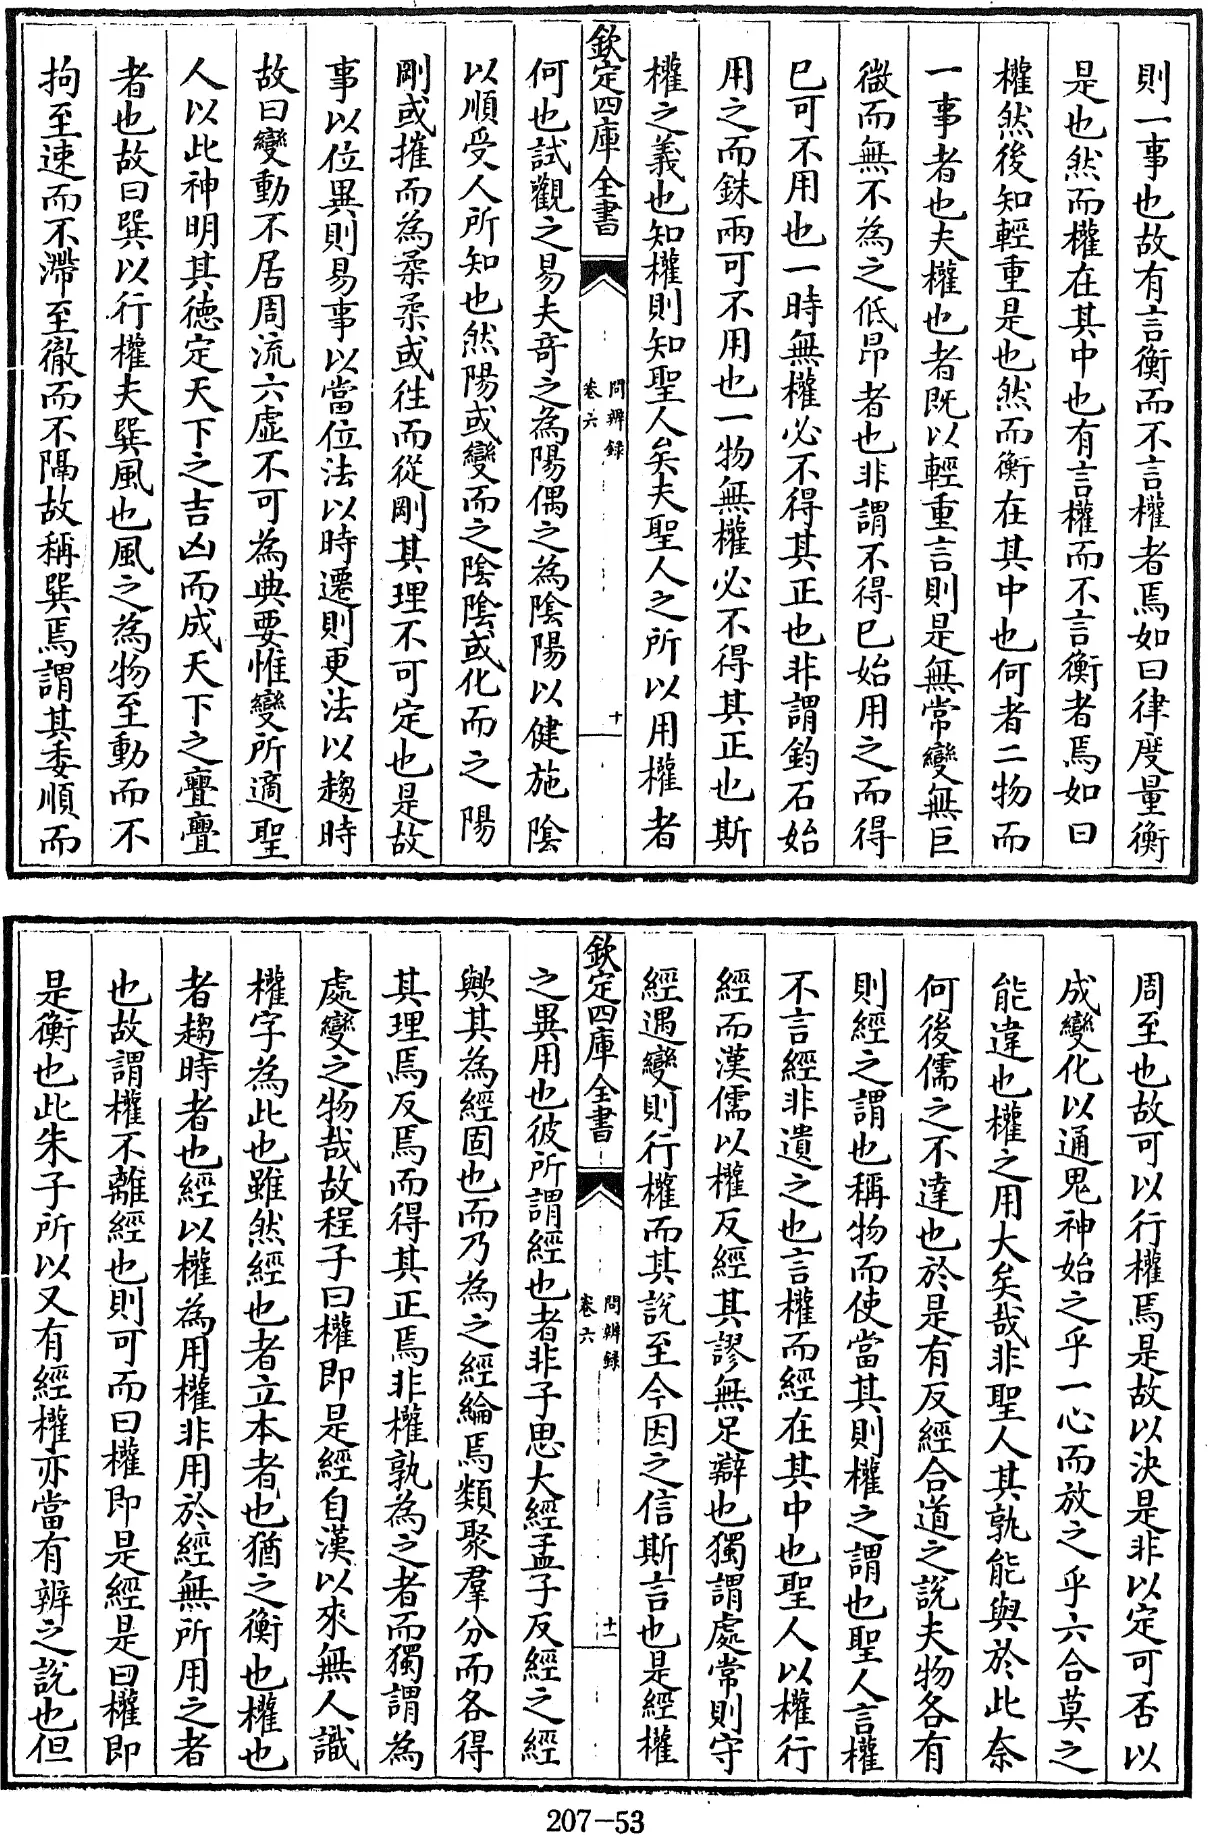 則一事也故有言衡而不言權者焉如曰律度量衡
是也然而權在其中也有言權而不言衡者焉如曰
權然後知輕重是也然而衡在其中也何者二物而
一事者也夫權也者既以輕重言則是無常變無巨
微而無不為之低昻者也非謂不得已始用之而得
已可不用也一時無權必不得其正也非謂鈞石始
用之而銖兩可不用也一物無權必不得其正也斯
權之義也知權則知聖人矣夫聖人之所以用權者
欽定四庫全書
問辨録
卷六
十
何也試觀之易夫竒之為陽偶之為陰陽以健施陰
以順受人所知也然陽或變而之陰陰或化而之陽
剛或摧而為柔柔或徃而從剛其理不可定也是故
事以位異則易事以當位法以時遷則更法以趨時
故曰變動不居周流六虛不可為典要惟變所適聖
人以此神明其徳定天下之吉凶而成天下之亹亹
者也故曰巽以行權夫巽風也風之為物至動而不
拘至速而不滯至徹而不隔故稱巽焉謂其委順而
周至也故可以行權焉是故以決是非以定可否以
成變化以通鬼神始之乎一心而放之乎六合莫之
能違也權之用大矣哉非聖人其孰能與於此奈
何後儒之不達也於是有反經合道之說夫物各有
則經之謂也稱物而使當其則權之謂也聖人言權
不言經非遺之也言權而經在其中也聖人以權行
經而漢儒以權反經其謬無足辯也獨謂處常則守
經遇變則行權而其說至今因之信斯言也是經權
欽定四庫全書
問辨録
卷六
十一
之異用也彼所謂經也者非子思大經孟子反經之經
歟其為經固也而乃為之經綸焉類聚羣分而各得
其理焉反焉而得其正焉非權孰為之者而獨謂為
處變之物哉故程子曰權即是經自漢以來無人識
權字為此也雖然經也者立本者也猶之衡也權也
者趨時者也經以權為用權非用於經無所用之者
也故謂權不離經也則可而曰權即是經是曰權即
是衡也此朱子所以又有經權亦當有辨之說也但
207-53